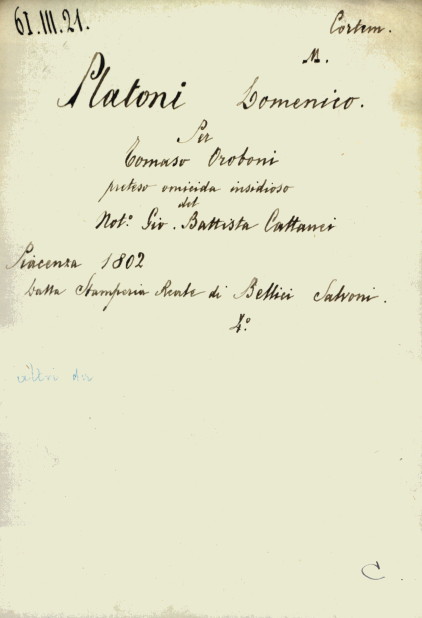 61.III.21.
Cortem.
M.
Platoni Domenico.
Per
Tomaso Oroboni
preteso omicida insidioso
del
Not.º Gio. Battista Cattanei
Piacenza 1802
Dalla Stamperia Reale di Bellici Salvoni.
4.º
altri
C